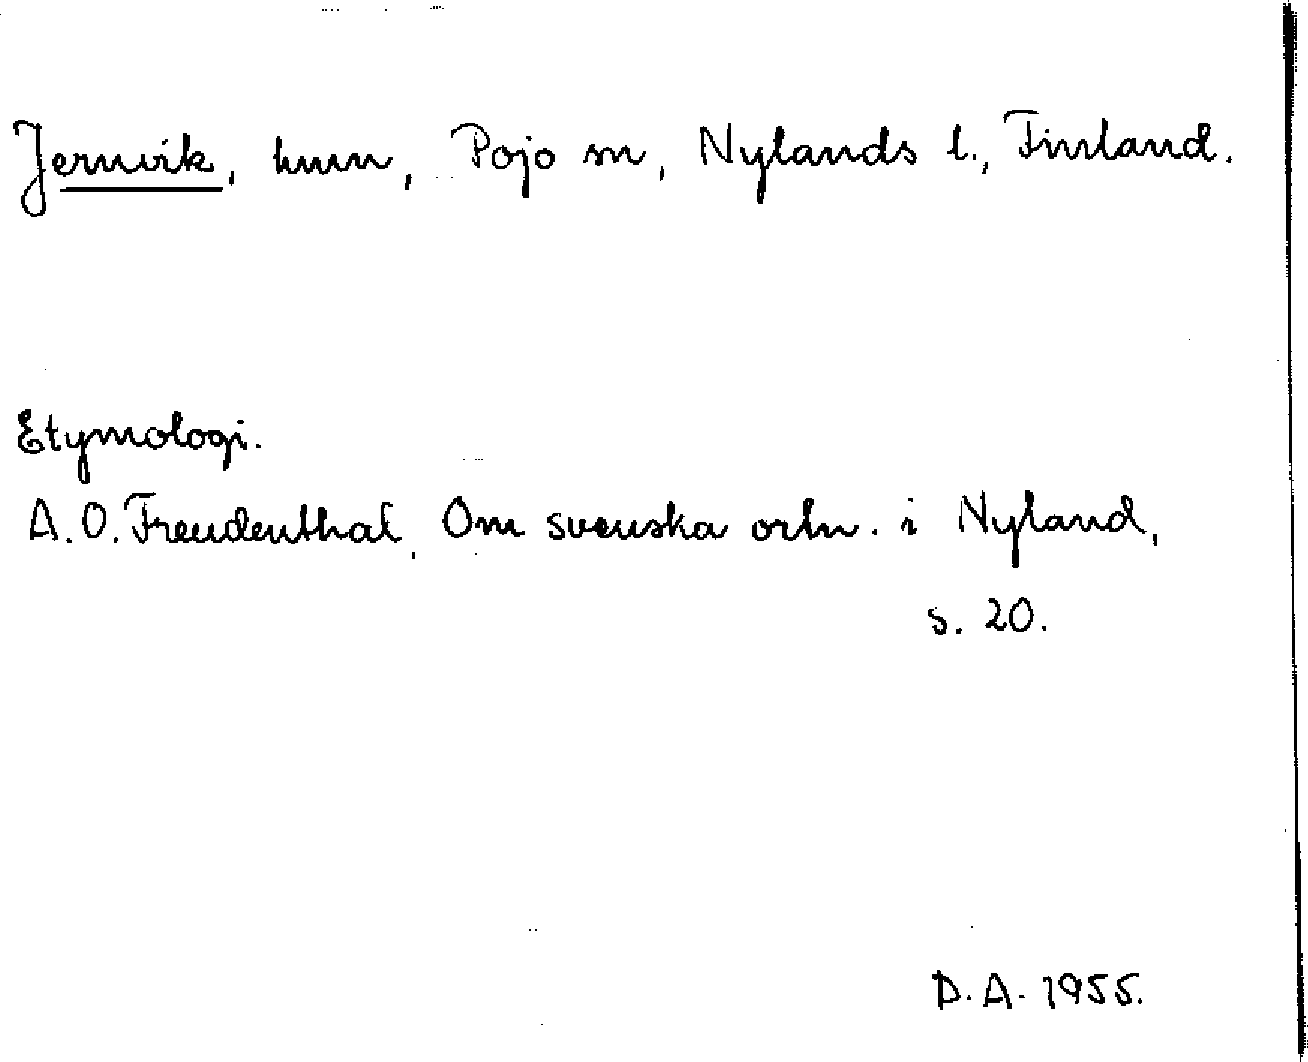 Jernvik, hmn, Pojo sn, Nylands l., Finland.
Etymologi.
A.O. Freudenthal, Om svenska ortn. i Nyland,
s. 20.
D.A. 1955.